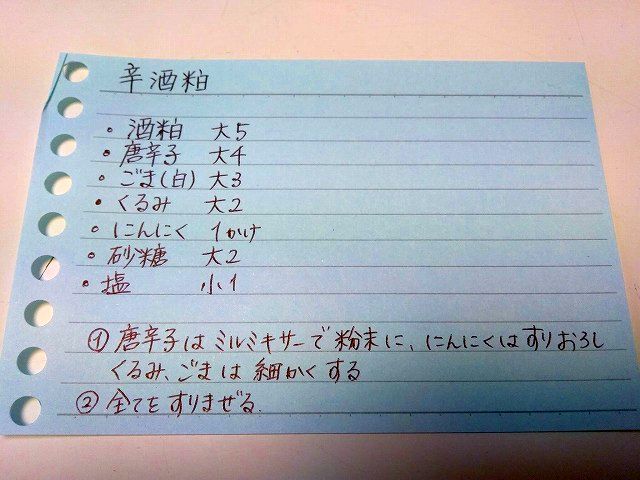 辛酒粕
・酒粕 大5
・唐辛子 大4
・ごま(白) 大3
・くるみ 大2
・にんにく 1かけ
・砂糖 大2
・塩 小1
①唐辛子はミルミキサーで粉末に、にんにくはすりおろし
くるみ、ごまは細かくする
②全てをすりまぜる.